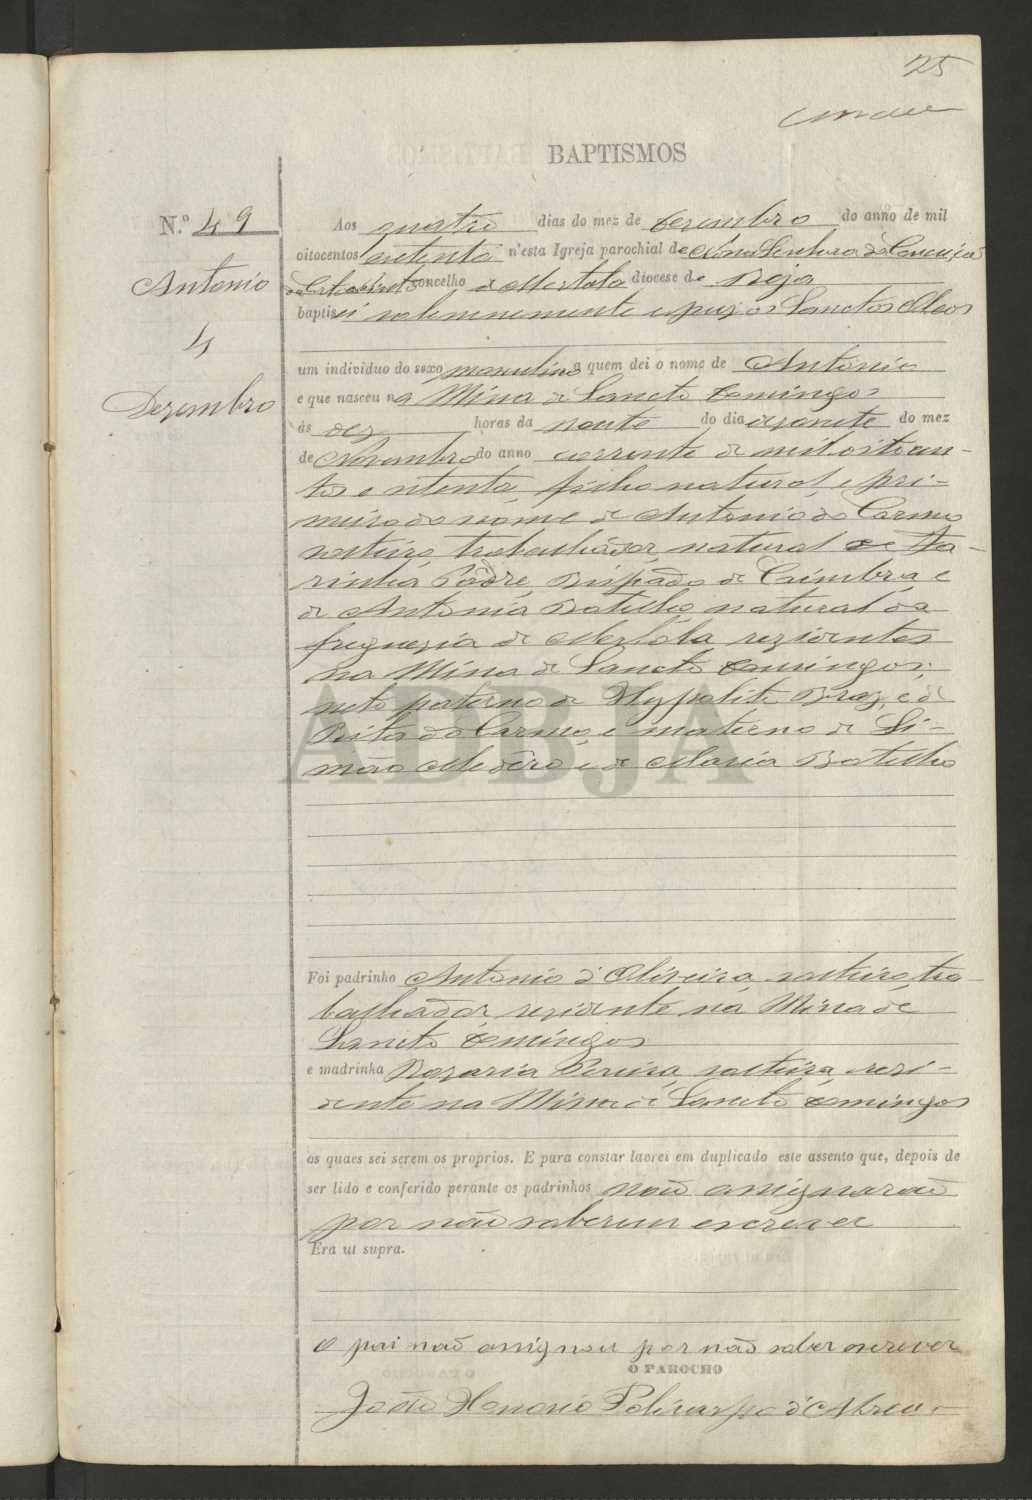 25
BAPTISMOS
N.º 49
Antonio
4
Dezembro
Aos quatro dias do mez de Dezembro do anno de mil
oitocentos oitenta n'esta Igreja parochial de Nossa Senhora da Conceição
concelho de Mertola diocese de Beja
baptisei solemnemente e puz os Sanctos Oleos
um individuo do sexo masculino a quem dei o nome de Antonio
e que nasceu na Mina de Sancto Domingos
ás dez horas da noute do dia dezanete do mez
de Novembro do anno corrente de mil oitocen-
tos e oitenta, filho natural e pri-
meiro do nome de Antonio do Carmo
solteiro, trabalhador, natural de Fa-
rinha Pôdre, Bispado de Coimbra e
de Antonia Botelho natural da
freguezia de Mertola rezidentes
na Mina de Sancto Domingos,
neto paterno de Hypolito Braz, e de
Rita do Carmo, e materno de Si-
mão Medêro e de Maria Botelho
Foi padrinho Antonio d'Oliveira, solteiro tra-
balhador rezidente na Mina de
Sancto Domingos
e madrinha Rozaria Pereira solteira rezi-
dente na Mina de Sancto Domingos
os quaes sei serem os proprios. E para constar lavrei em duplicado este assento que, depois de
ser lido e conferido perante os padrinhos não assignarão
por não saberem escrever
Era ut supra.
O pai não assignou por não saber escrever
O PAROCHO
João Honorio Policarpo d'Abreu
ADBJA